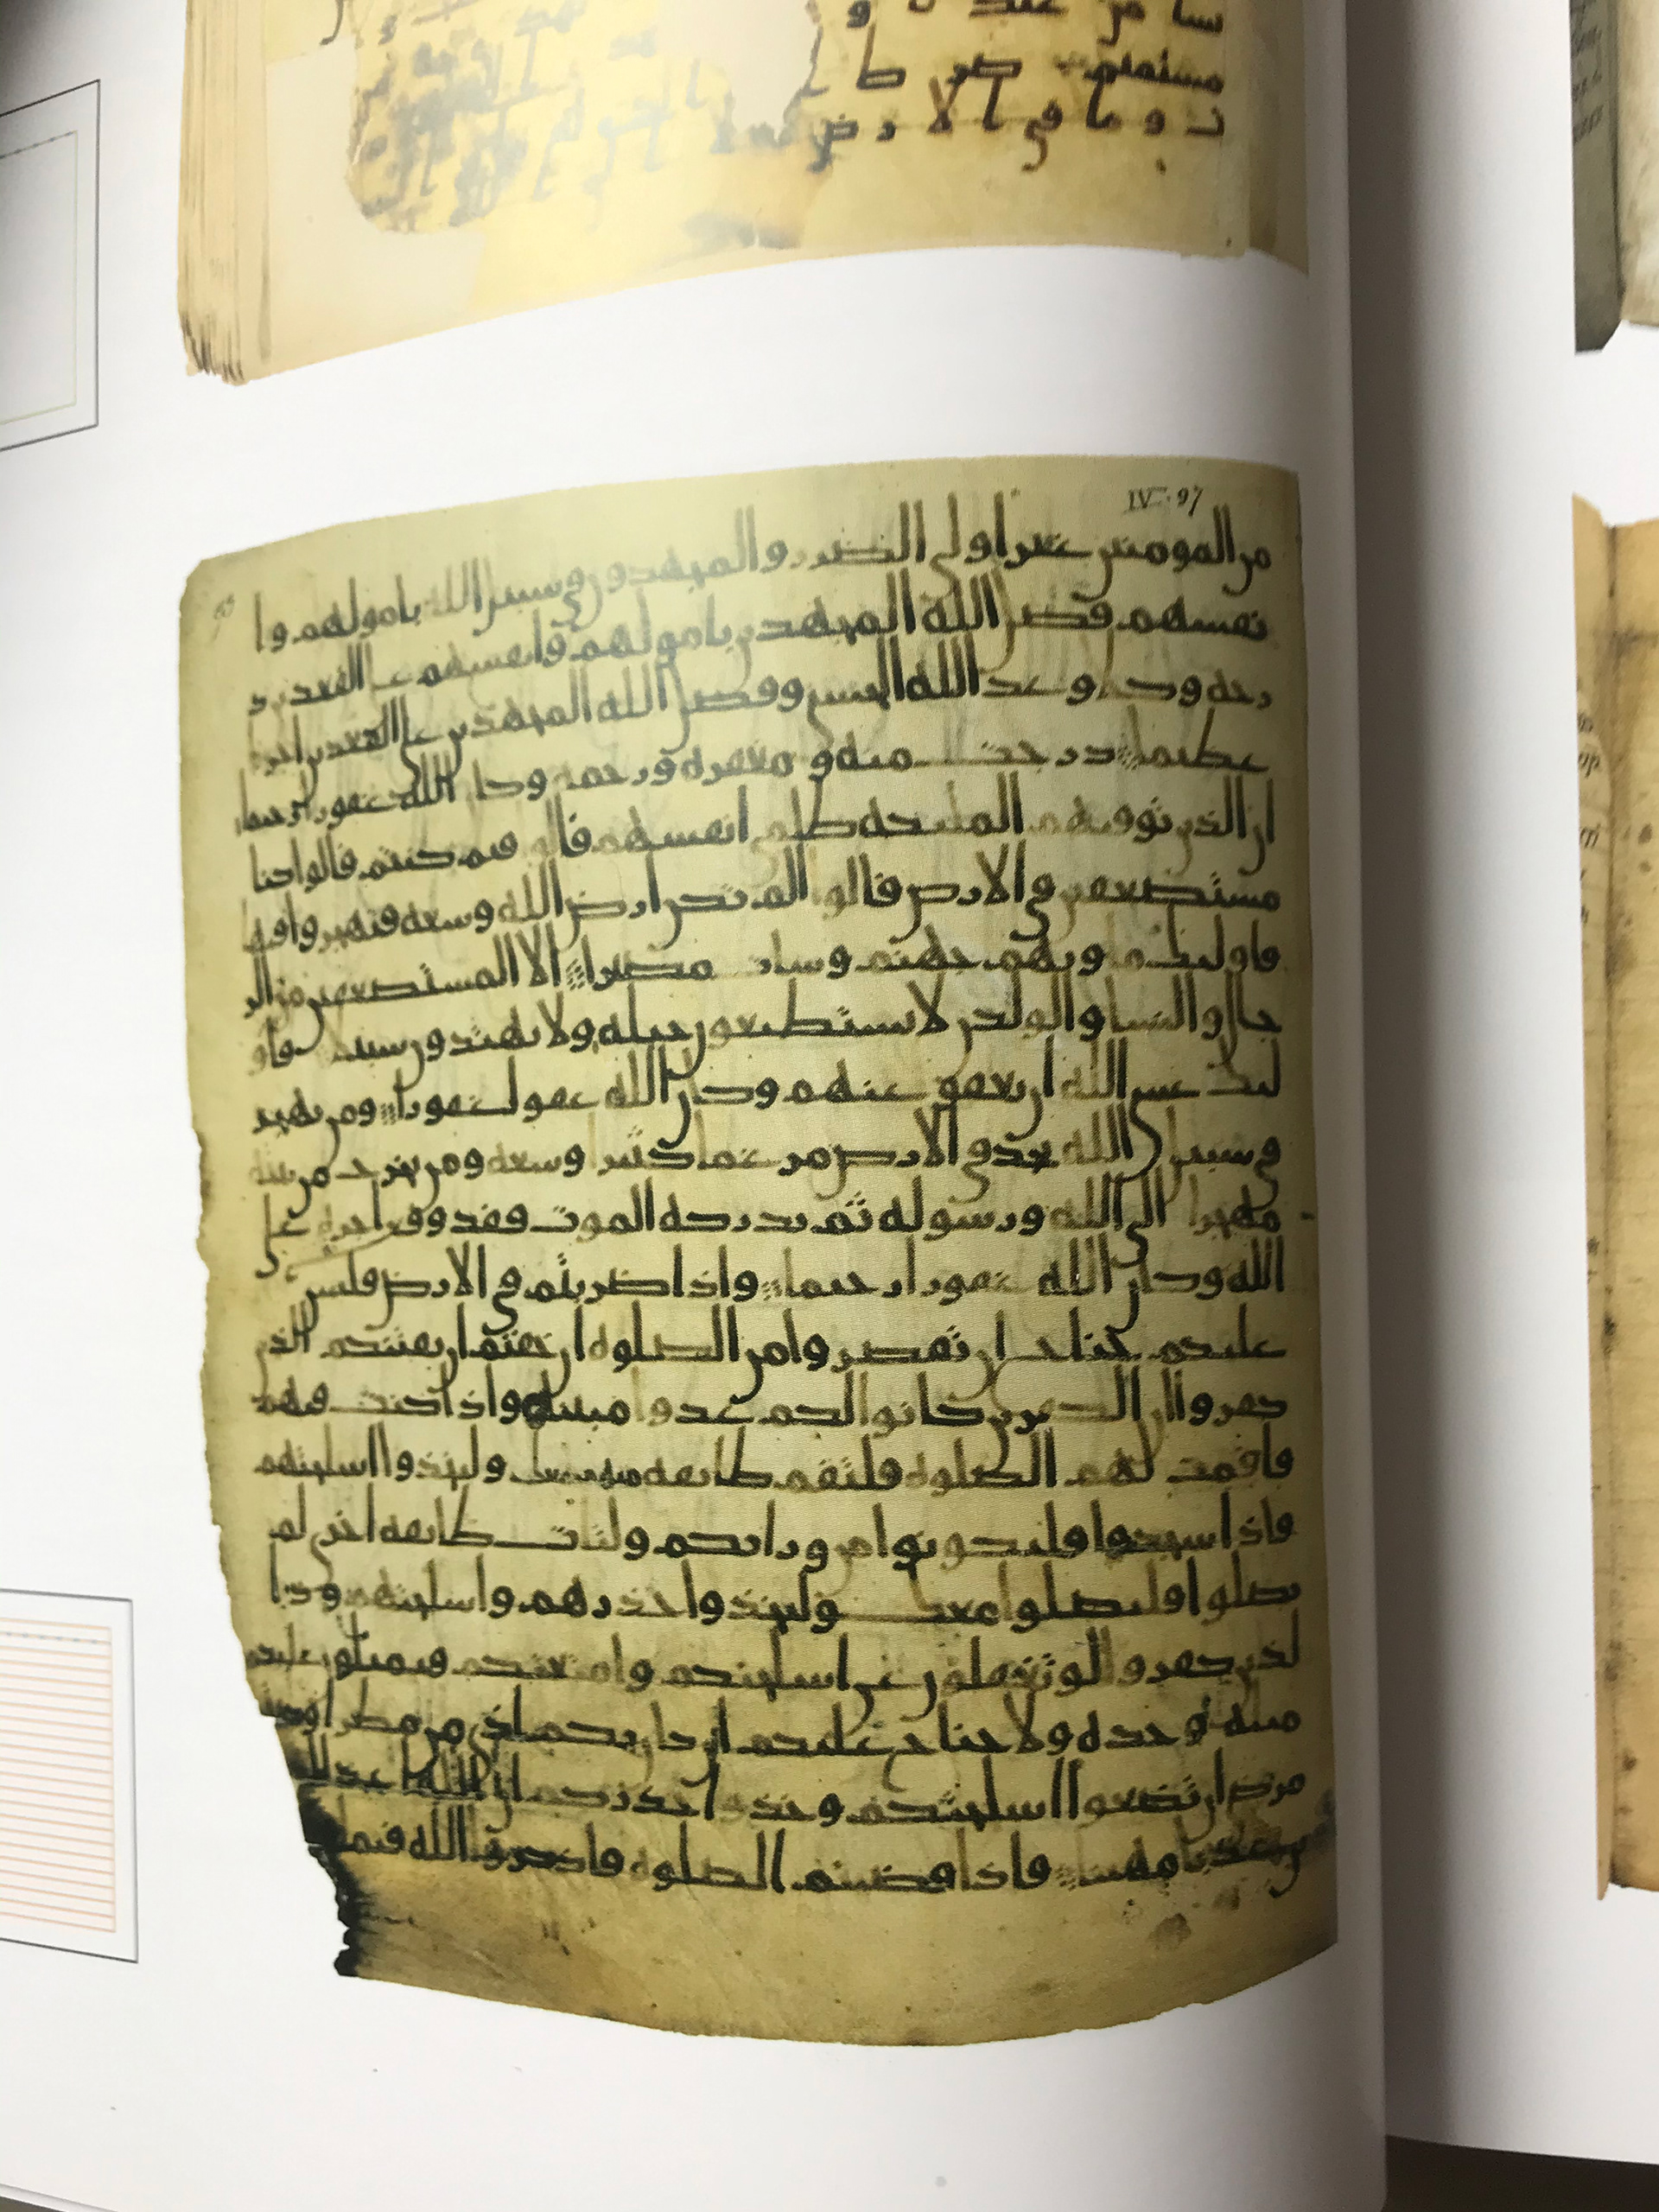 شا من عبد نا و
مستقيم صر ط ا
ت و ما في ا لا ر ض
IV-97
من المومنين غير اولي الضرر والمجهدون في سبيل الله بامولهم وا
نفسهم فضل الله المجهدين بامولهم وانفسهم على القعدين د
رجه وكلا وعد الله الحسنى وفضل الله المجهدين على القعدين اجرا
عظيما درجت منه ومغفره ورحمه وكان الله غفورا رحيما
ان الذين توفيهم المليكه ظلمي انفسهم قالوا فيم كنتم قالوا كنا
مستضعفين في الارض قالوا الم تكن ارض الله وسعه فتهجروا فيها
فاوليك ماويهم جهنم وسات مصيرا الا المستضعفين من الر
جال والنسا والولدن لا يستطيعون حيله ولا يهتدون سبيلا فاو
ليك عسى الله ان يعفو عنهم وكان الله عفوا غفورا ومن يهجر
في سبيل الله يجد في الارض مرغما كثيرا وسعه ومن يخرج من بيته
مهجرا الى الله ورسوله ثم يدركه الموت فقد وقع اجره على
الله وكان الله غفورا رحيما واذا ضربتم في الارض فليس
عليكم جناح ان تقصروا من الصلوه ان خفتم ان يفتنكم الذين
كفروا ان الكفرين كانوا لكم عدوا مبينا واذا كنت فيهم
فاقمت لهم الصلوه فلتقم طايفه منهم معك ولياخذوا اسلحتهم
فاذا سجدوا فليكونوا من ورايكم ولتات طايفه اخرى لم
يصلوا فليصلوا معك ولياخذوا حذرهم واسلحتهم ود ا
لذين كفروا لو تغفلون عن اسلحتكم وامتعتكم فيميلون عليكم
ميله وحده ولا جناح عليكم ان كان بكم اذى من مطر او كنتم
مرضى ان تضعوا اسلحتكم وخذوا حذركم ان الله اعد للكا
فرين عذابا مهينا فاذا قضيتم الصلوه فاذكروا الله قيما